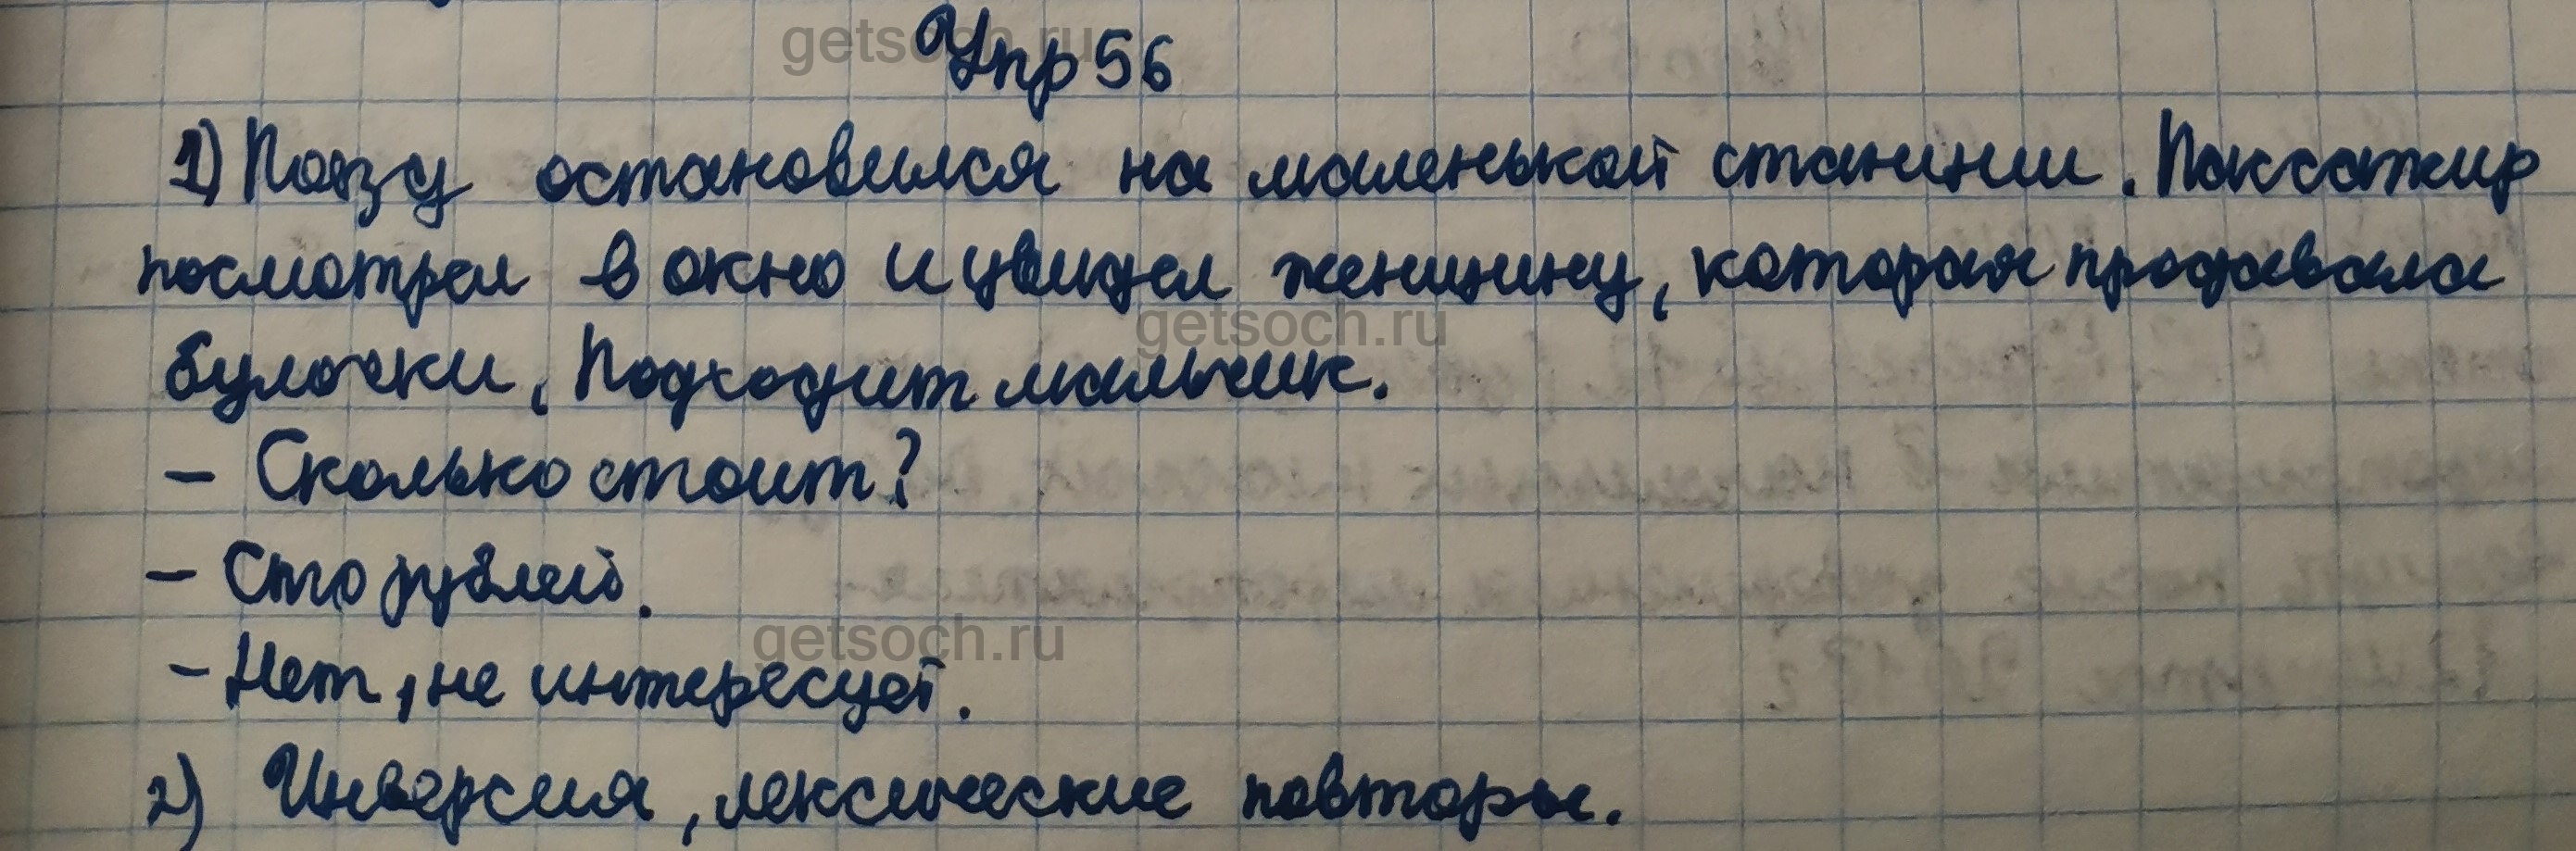 Упр 56
1) Поезд остановился на маленькой станции. Пассажир
посмотрел в окно и увидел женщину, которая продавала
булочки. Подходит мальчик.
– Сколько стоит?
– Сто рублей.
– Нет, не интересует.
2) Инверсия, лексические повторы.
getsoch.ru
getsoch.ru
getsoch.ru